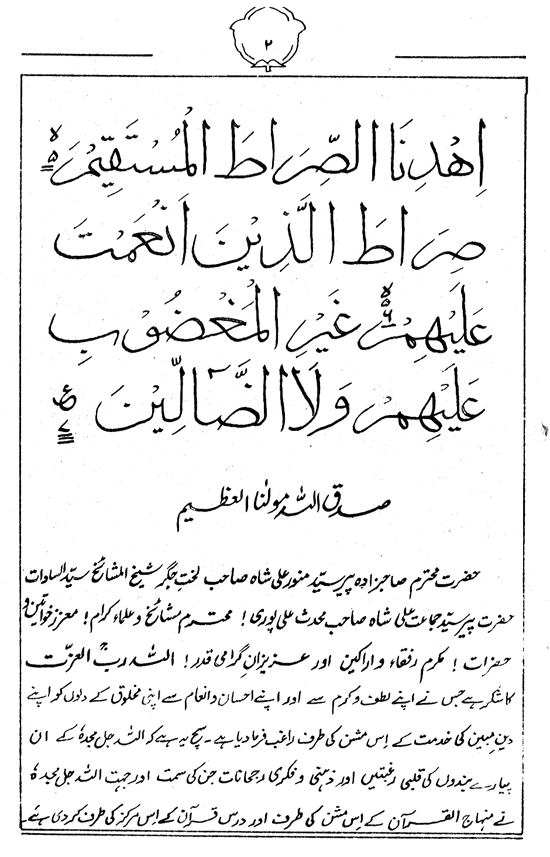 ۲
اِهْدِنَا الصِّرَاطَ الْمُسْتَقِيْمَ ۝۵
صِرَاطَ الَّذِيْنَ اَنْعَمْتَ
عَلَيْهِمْ ۝۶ غَيْرِ الْمَغْضُوْبِ
عَلَيْهِمْ وَلَا الضَّآلِّيْنَ ۝۷
صدق اللہ مولنا العظیم
حضرت محترم صاحبزادہ پیر سیّد منور علی شاہ صاحب لختِ جگر شیخ المشائخ سیّد السادات
حضرت پیر سیّد جماعت علی شاہ صاحب محدث علی پوری! محترم مشائخ و علماء کرام! معزز خواتین و
حضرات! مکرم رفقاء و اراکین اور عزیزانِ گرامی قدر! اللہ ربّ العزّت
کا شکر ہے جس نے اپنے لطف و کرم سے اور اپنے احسان و انعام سے اپنی مخلوق کے دلوں کو اپنے
دینِ مبین کی خدمت کے اِس مشن کی طرف راغب فرما دیا ہے۔ سچ یہ ہے کہ اللہ جل مجدہٗ کے ان
پیارے بندوں کی قلبی رغبتیں اور ذہنی و فکری رجحانات جن کی سمت اور جہت اللہ جل مجدہٗ
نے منہاج القرآن کے اِس مشن کی طرف اور درسِ قرآن کے اِس مرکز کی طرف کر دی ہے۔